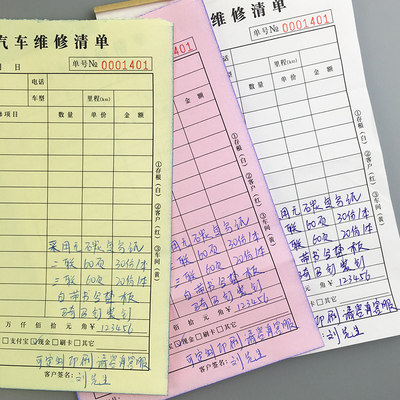 汽车维修清单
单号№ 0001401
单号№ 0001401
№ 0001401
月 日
电话
车型 里程(km)
修项目 数量 单价 金额
采用无碳复写纸
三联 60页 30份1本
二联 60页 20份1本
自带书写垫板
万仟佰拾元角¥123456
支付宝 ☑现金 □刷卡 □其它
可定制印刷 请咨询客服
客户签名: 刘先生
里程(km)
数量 单价 金额
①存根(白) ②客户(红) ③车间(黄)
用无碳复写纸
三联 60页 30份1本
二联 60页 20份1本
自带书写垫板
佰拾元角¥123456
☑现金 □刷卡 □其它
可定制印刷 请咨询客服
客户签名: 刘先生
里程(km)
数量 单价 金额
①存根(白) ②客户(红) ③车间(黄)
用无碳复写纸
三联 60页 30份1本
二联 60页 20份1本
带书写垫板
拾元角¥123456
□刷卡 □其它
印刷 请咨询客服
刘先生
①存根(白) ②客户(红) ③车间(黄)